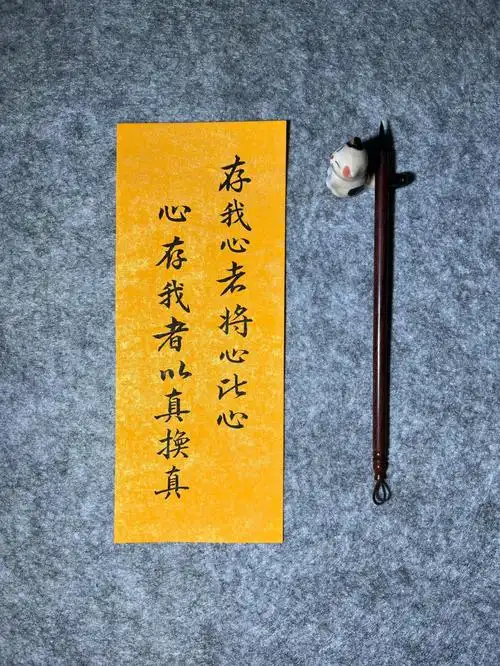 存我心者将心比心
心存我者以真换真